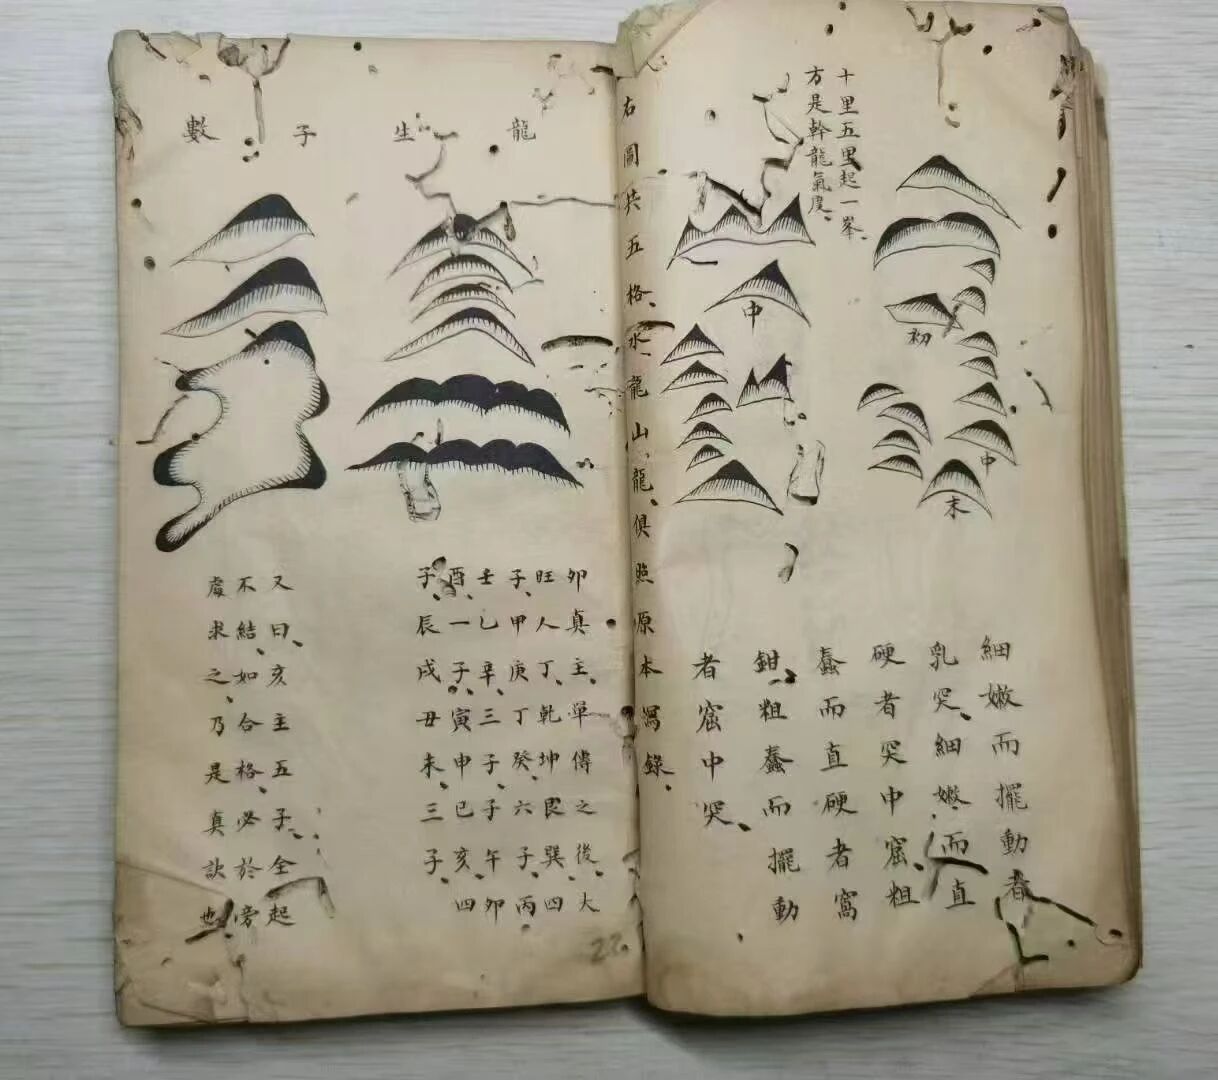 初
中
末
十里五里起一峯、
方是幹龍氣度、
中
細嫩而擺動者
乳突、細嫩、而直
硬者突中窟、粗
蠢而直硬者窩
鉗、粗蠢而擺動
者窟中突、
右圖共五格、水、龍山龍、俱照原本寫錄、
龍生子數
卯真主、單傳之後、大
旺人丁、乾坤艮巽、四
子、甲庚丁癸、六子、丙
壬乙辛三子、子午卯
酉、一子、寅申巳亥、四
子、辰戌丑未、三子、
又曰、亥主五子、全起
不結、如合格、必於旁
處求之、乃是真訣也
22